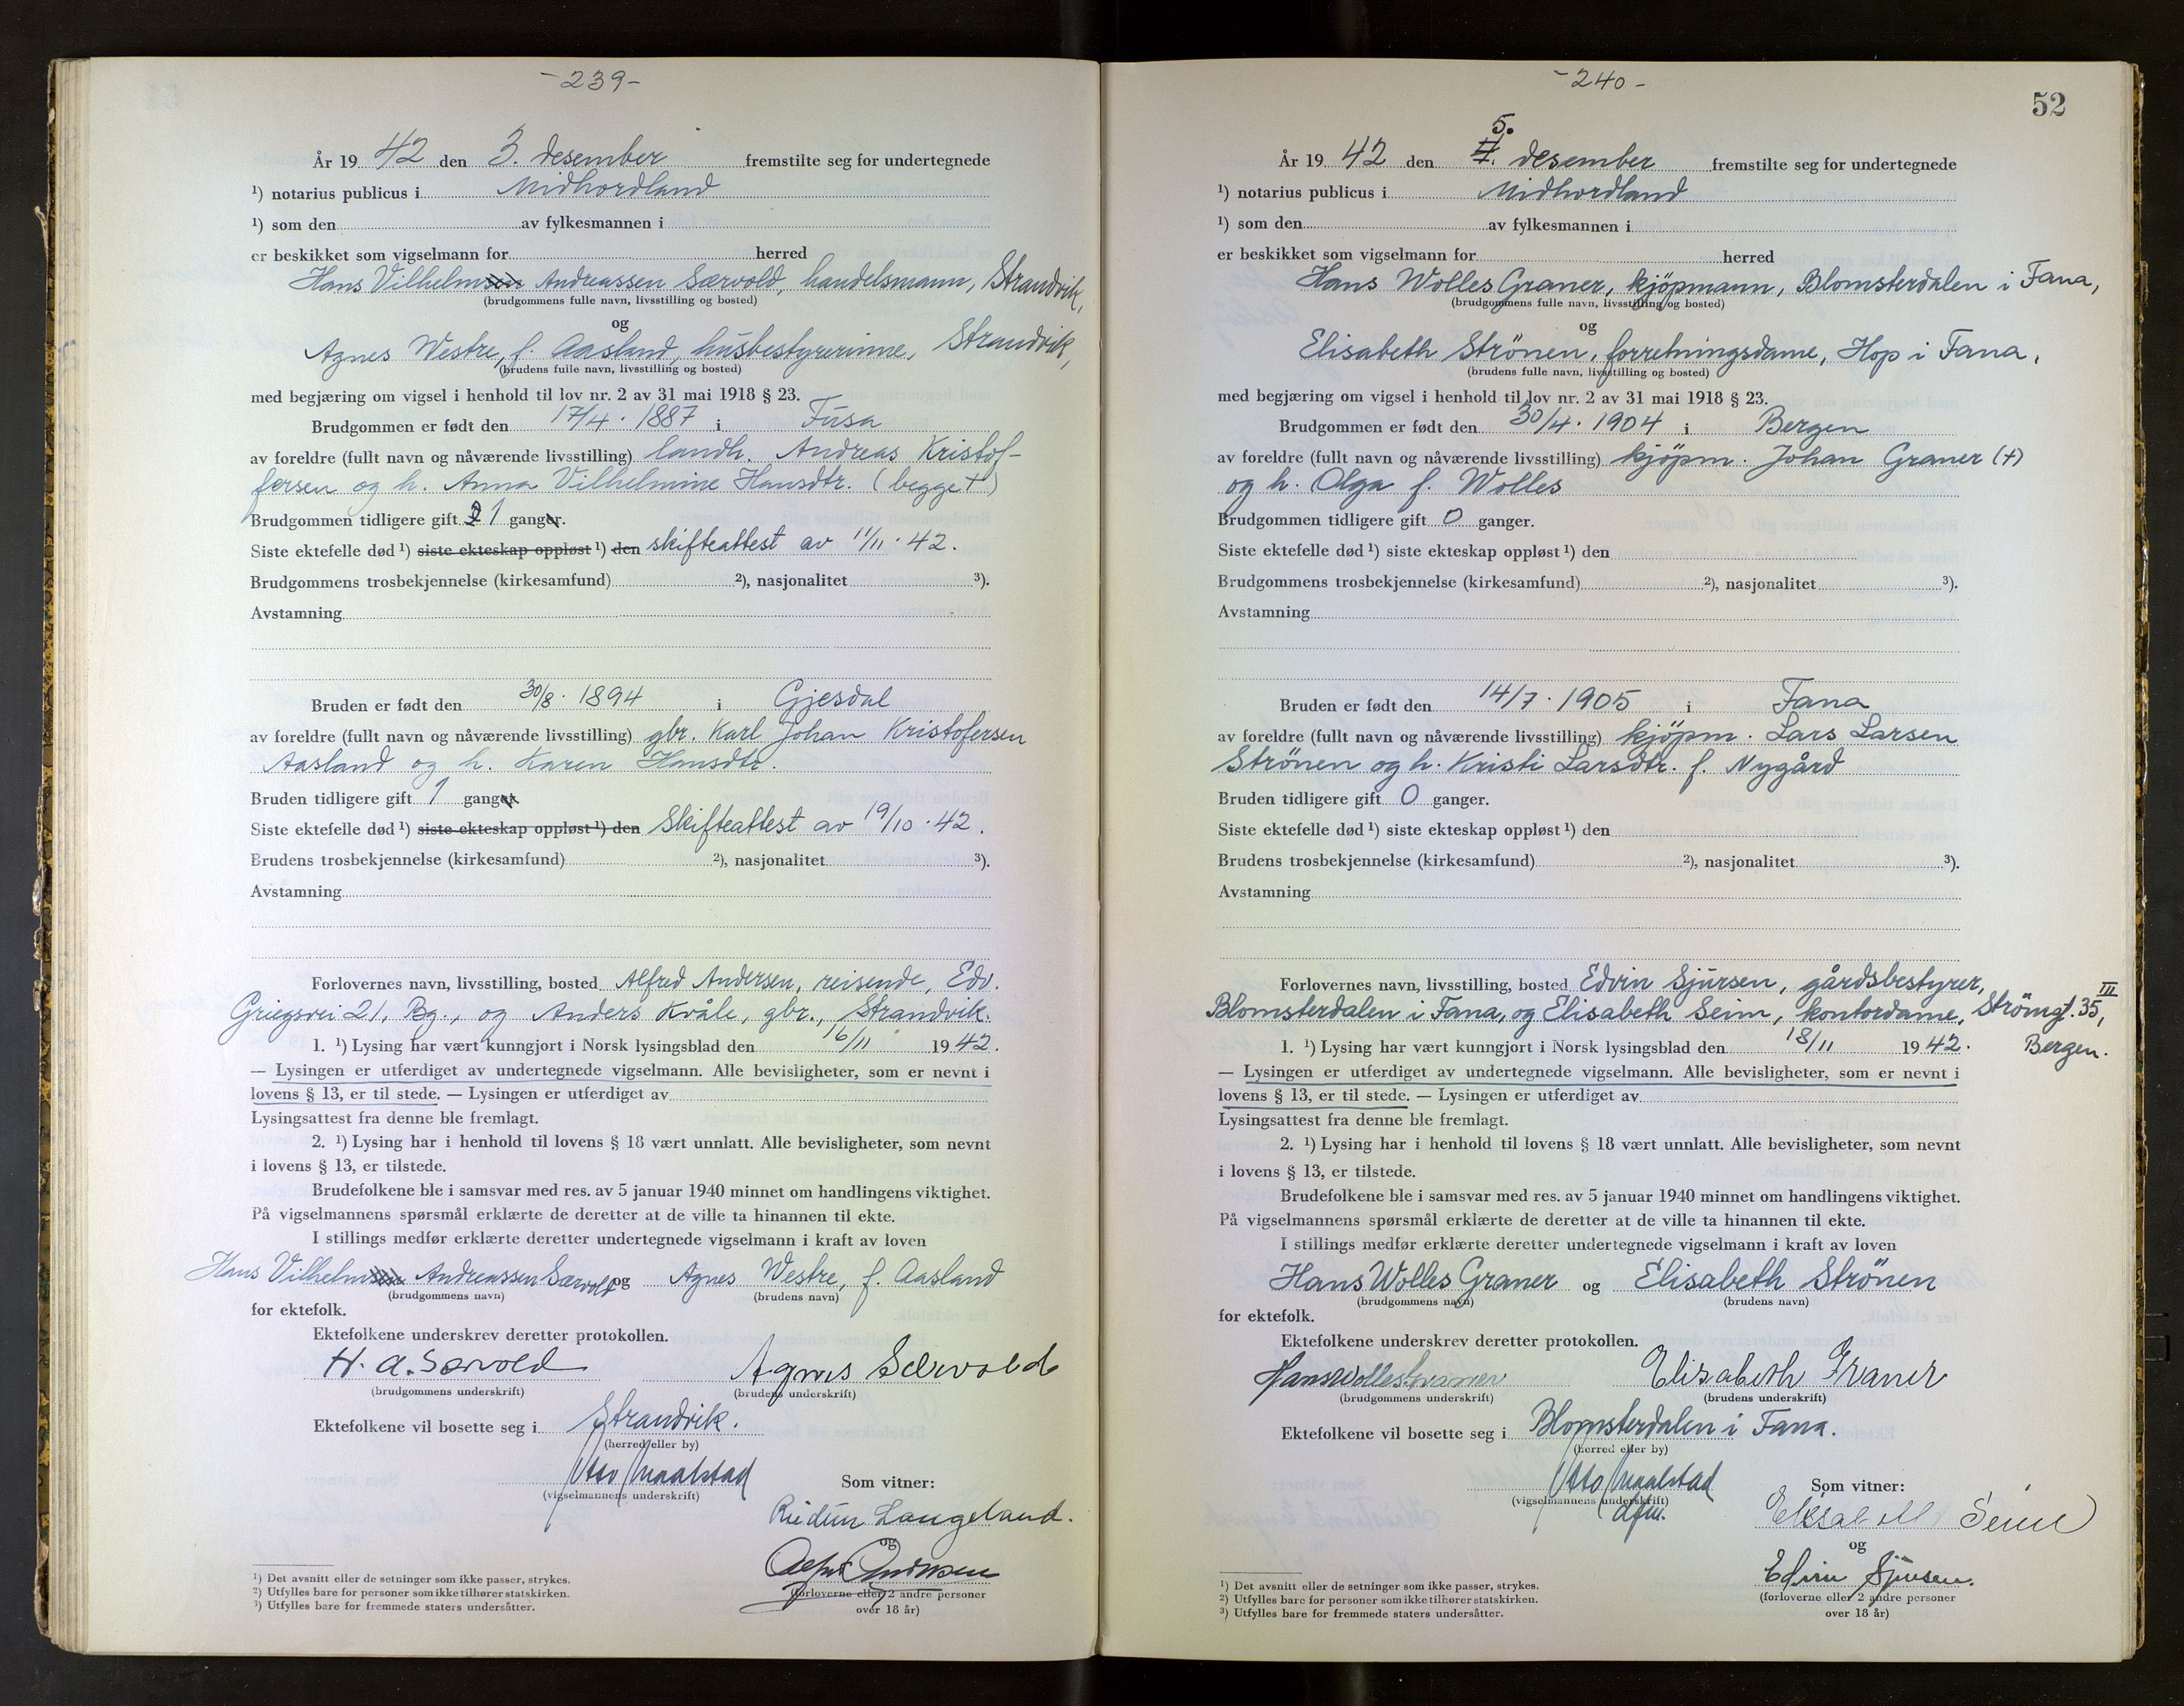 -239-
År 19 42 den 3. desember fremstilte seg for undertegnede
¹) notarius publicus i Midhordland
¹) som den av fylkesmannen i
er beskikket som vigselmann for herred
Hans Vilhelm Andreassen Særvold, handelsmann, Strandvik,
(brudgommens fulle navn, livsstilling og bosted)
og
Agnes Westre, f. Aasland, husbestyrerinne, Strandvik,
(brudens fulle navn, livsstilling og bosted)
med begjæring om vigsel i henhold til lov nr. 2 av 31 mai 1918 § 23.
Brudgommen er født den 17/4. 1887 i Fusa
av foreldre (fullt navn og nåværende livsstilling) landh. Andreas Kristof-
fersen og h. Anna Vilhelmine Hansdtr. (begge +)
Brudgommen tidligere gift 1 ganger.
Siste ektefelle død ¹) siste ekteskap oppløst ¹) den skifteattest av 11/11. 42.
Brudgommens trosbekjennelse (kirkesamfund) ²), nasjonalitet ³).
Avstamning
Bruden er født den 30/8. 1894 i Gjesdal
av foreldre (fullt navn og nåværende livsstilling) gbr. Karl Johan Kristofersen
Aasland og h. Karen Hansdtr.
Bruden tidligere gift 1 ganger
Siste ektefelle død ¹) siste ekteskap oppløst ¹) den Skifteattest av 19/10. 42.
Brudens trosbekjennelse (kirkesamfund) ²), nasjonalitet ³).
Avstamning
Forlovernes navn, livsstilling, bosted Alfred Andersen, reisende, Edv.
Griegsvei 21, Bg., og Anders Kvåle, gbr., Strandvik.
1. ¹) Lysing har vært kunngjort i Norsk lysingsblad den 16/11 19 42.
— Lysingen er utferdiget av undertegnede vigselmann. Alle bevisligheter, som er nevnt i
lovens § 13, er til stede. — Lysingen er utferdiget av
Lysingsattest fra denne ble fremlagt.
2. ¹) Lysing har i henhold til lovens § 18 vært unnlatt. Alle bevisligheter, som nevnt
i lovens § 13, er tilstede.
Brudefolkene ble i samsvar med res. av 5 januar 1940 minnet om handlingens viktighet.
På vigselmannens spørsmål erklærte de deretter at de ville ta hinannen til ekte.
I stillings medfør erklærte deretter undertegnede vigselmann i kraft av loven
Hans Vilhelm Andreassen Særvold og Agnes Westre, f. Aasland
(brudgommens navn) (brudens navn)
for ektefolk.
Ektefolkene underskrev deretter protokollen.
H. A. Særvold Agnes Særvold
(brudgommens underskrift) (brudens underskrift)
Ektefolkene vil bosette seg i Strandvik.
(herred eller by)
Otto Maalstad
(vigselmannens underskrift)
Som vitner:
Langeland.
og
Alfred Andersen
(forloverne eller 2 andre personer
over 18 år)
¹) Det avsnitt eller de setninger som ikke passer, strykes.
²) Utfylles bare for personer som ikke tilhører statskirken.
³) Utfylles bare for fremmede staters undersåtter.
-240-
52
5.
År 19 42 den desember fremstilte seg for undertegnede
¹) notarius publicus i Midhordland
¹) som den av fylkesmannen i
er beskikket som vigselmann for herred
Hans Wolles Graner, kjöpmann, Blomsterdalen i Fana,
(brudgommens fulle navn, livsstilling og bosted)
og
Elisabeth Strönen, forretningsdame, Hop i Fana,
(brudens fulle navn, livsstilling og bosted)
med begjæring om vigsel i henhold til lov nr. 2 av 31 mai 1918 § 23.
Brudgommen er født den 30/4. 1904 i Bergen
av foreldre (fullt navn og nåværende livsstilling) kjöpm. Johan Graner (+)
og h. Olga f. Wolles
Brudgommen tidligere gift 0 ganger.
Siste ektefelle død ¹) siste ekteskap oppløst ¹) den
Brudgommens trosbekjennelse (kirkesamfund) ²), nasjonalitet ³).
Avstamning
Bruden er født den 14/7. 1905 i Fana
av foreldre (fullt navn og nåværende livsstilling) kjöpm. Lars Larsen
Strönen og h. Kristi Larsdtr. f. Nygård
Bruden tidligere gift 0 ganger.
Siste ektefelle død ¹) siste ekteskap oppløst ¹) den
Brudens trosbekjennelse (kirkesamfund) ²), nasjonalitet ³).
Avstamning
Forlovernes navn, livsstilling, bosted Edvin Sjursen, gårdsbestyrer,
Blomsterdalen i Fana, og Elisabeth Seim, kontordame, Strömgt. 35, III
1. ¹) Lysing har vært kunngjort i Norsk lysingsblad den 18/11 19 42. Bergen.
— Lysingen er utferdiget av undertegnede vigselmann. Alle bevisligheter, som er nevnt i
lovens § 13, er til stede. — Lysingen er utferdiget av
Lysingsattest fra denne ble fremlagt.
2. ¹) Lysing har i henhold til lovens § 18 vært unnlatt. Alle bevisligheter, som nevnt
i lovens § 13, er tilstede.
Brudefolkene ble i samsvar med res. av 5 januar 1940 minnet om handlingens viktighet.
På vigselmannens spørsmål erklærte de deretter at de ville ta hinannen til ekte.
I stillings medfør erklærte deretter undertegnede vigselmann i kraft av loven
Hans Wolles Graner og Elisabeth Strönen
(brudgommens navn) (brudens navn)
for ektefolk.
Ektefolkene underskrev deretter protokollen.
Hans Wolles Graner Elisabeth Graner
(brudgommens underskrift) (brudens underskrift)
Ektefolkene vil bosette seg i Blomsterdalen i Fana.
(herred eller by)
Otto Maalstad
(vigselmannens underskrift)
dfm.
Som vitner:
Elisabeth Seim
og
Edvin Sjursen.
(forloverne eller 2 andre personer
over 18 år)
¹) Det avsnitt eller de setninger som ikke passer, strykes.
²) Utfylles bare for personer som ikke tilhører statskirken.
³) Utfylles bare for fremmede staters undersåtter.